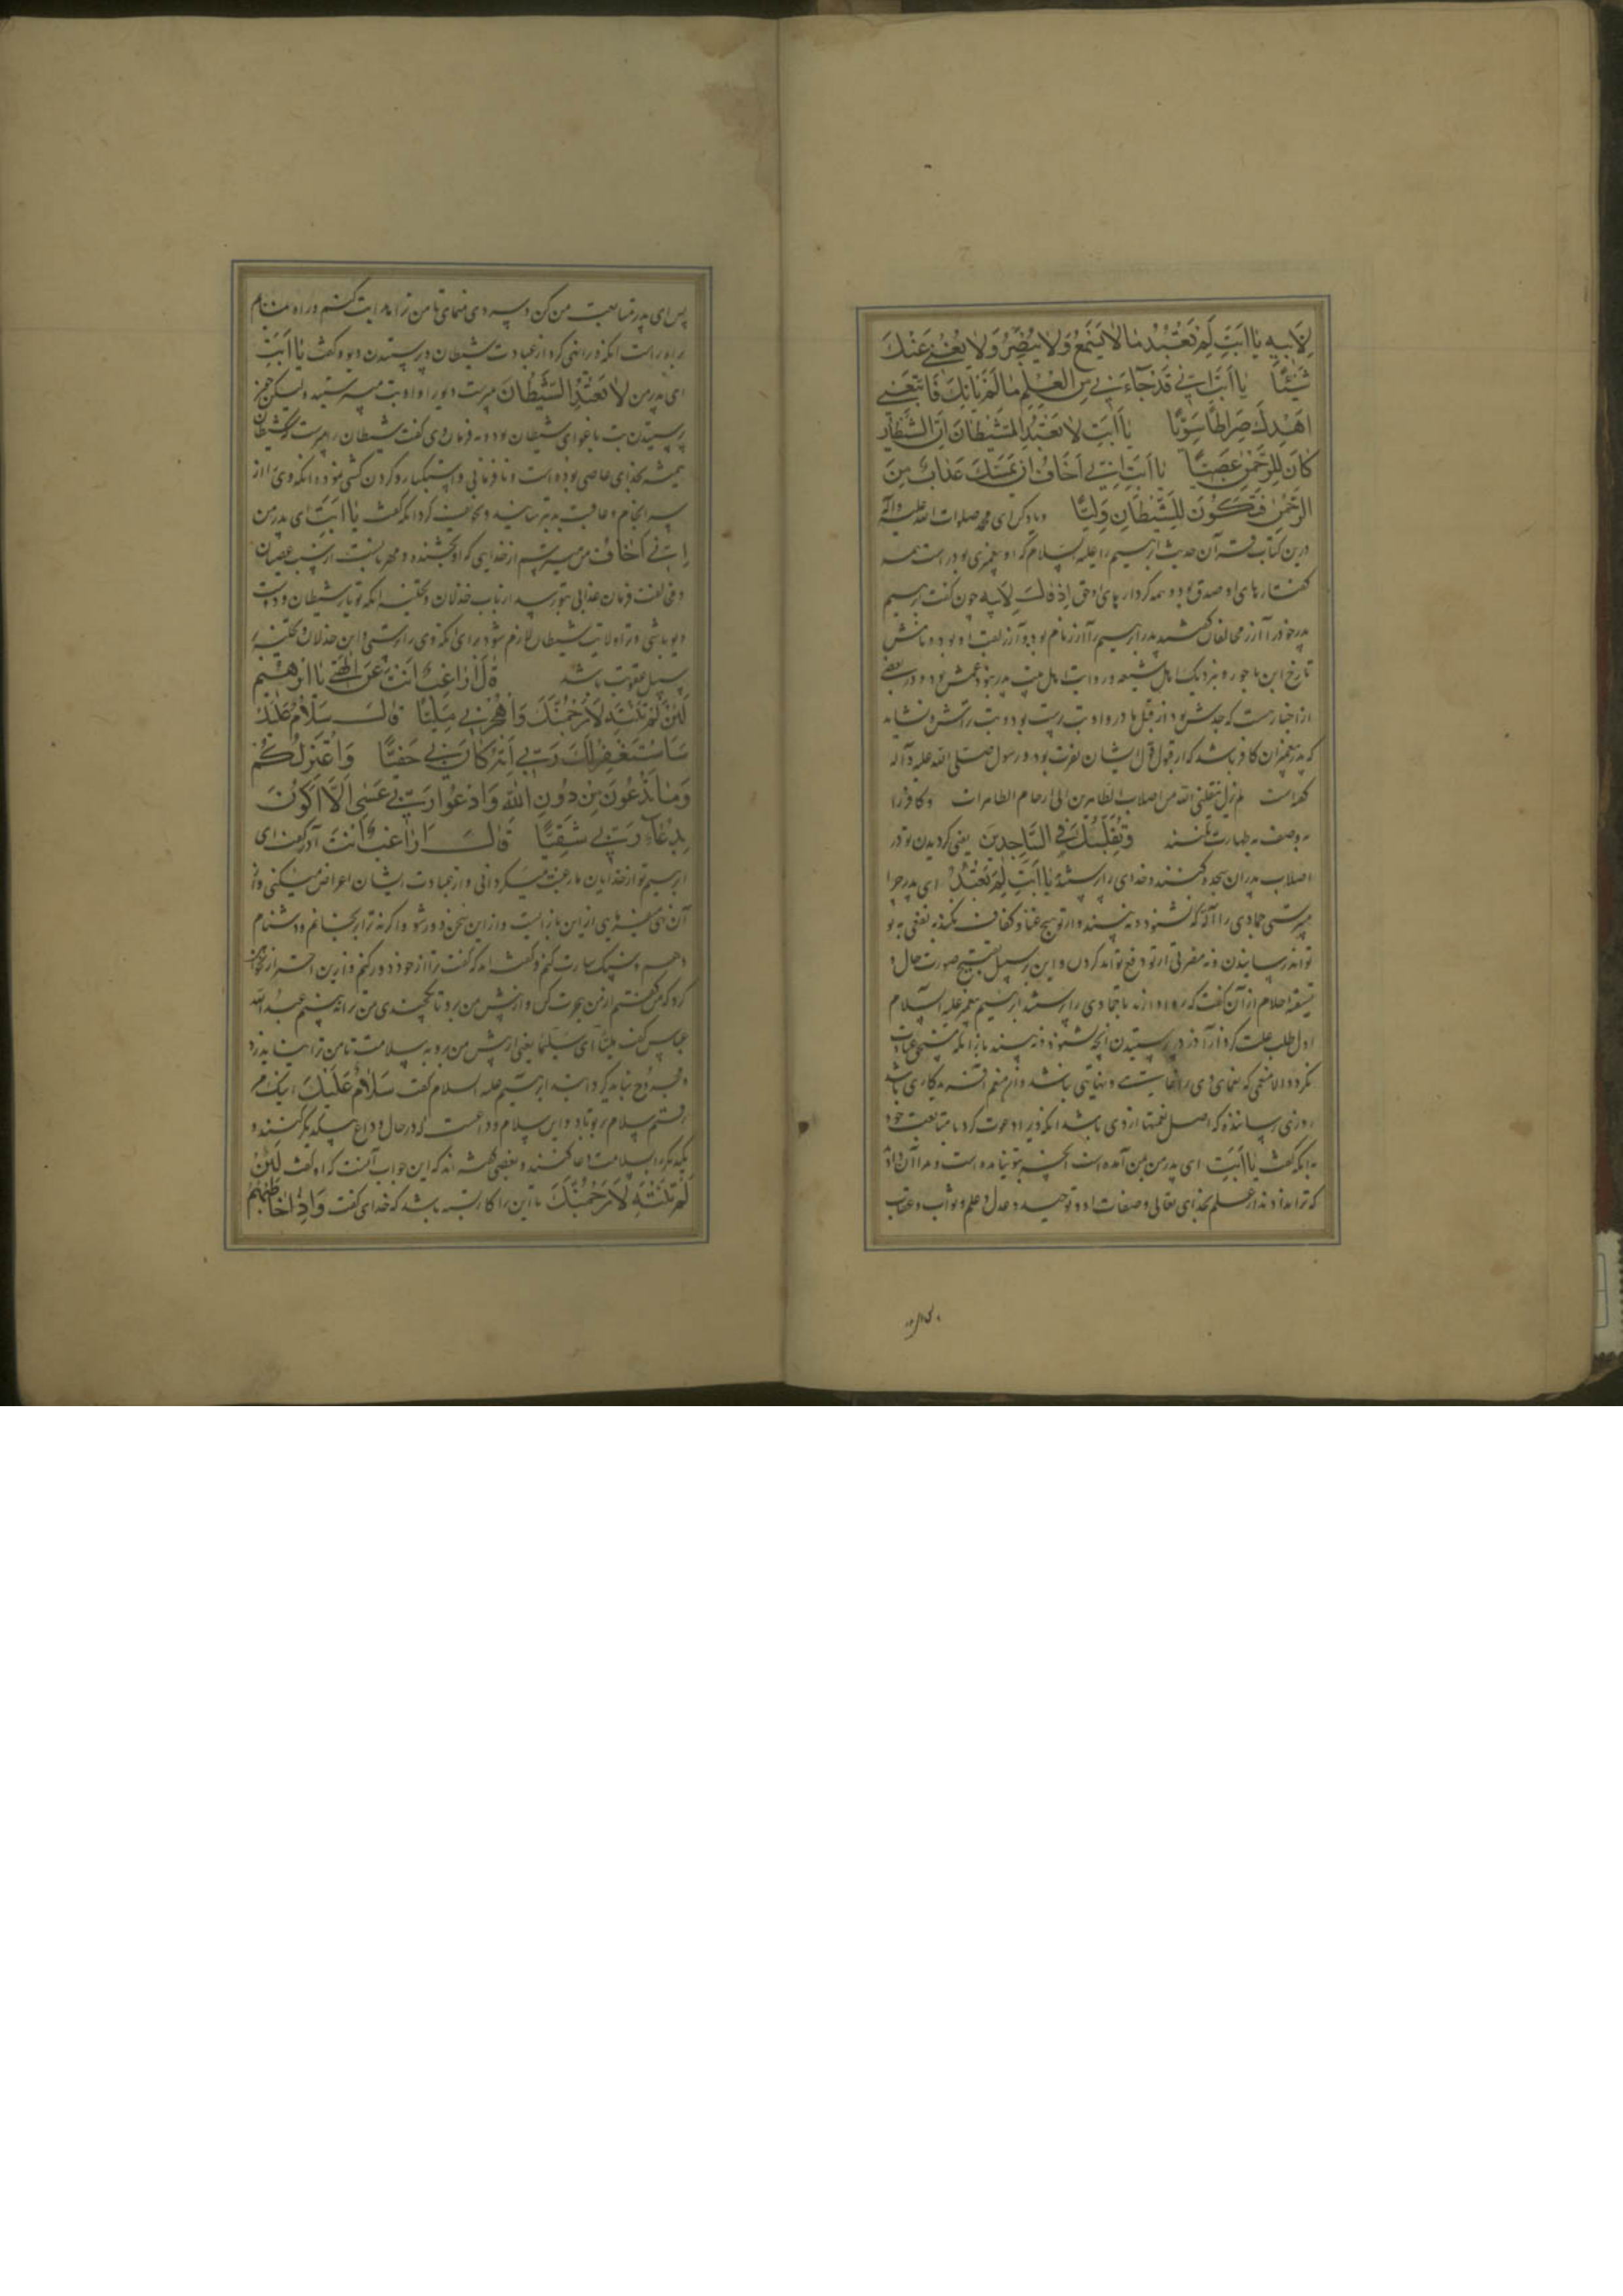 لِاَبيهِ يا اَبَتِ لِمَ تَعْبُدُ ما لا يَسْمَعُ وَلا يُبْصِرُ وَلا يُغْني عَنْكَ
شَيْئًا يا اَبَتِ اِنّي قَدْ جآءَني مِنَ الْعِلْمِ ما لَمْ يَاْتِكَ فَاتَّبِعْني
اَهْدِكَ صِراطًا سَوِيًّا يا اَبَتِ لا تَعْبُدِ الشَّيْطانَ اِنَّ الشَّيْطانَ
كانَ لِلرَّحْمنِ عَصِيًّا يا اَبَتِ اِنّي اَخافُ اَنْ يَمَسَّكَ عَذابٌ مِنَ
الرَّحْمنِ فَتَكُونَ لِلشَّيْطانِ وَلِيًّا و ياد كن ای محمد صلوات الله علیه وآله
درین کتاب قرآن حدیث ابرهیم را علیه السلام که او پیغمبری بود راست همه
گفتارهای او صدق بود و همه کردارهای او حق اِذْ قالَ لِاَبیهِ چون گفت ابرهیم
پدر خود را آزر مخالفان گفتند پدر ابرهیم را آزر نام بود و آزر لقب او بود و نامش
تارخ ابن ناحور و نزدیک اهل شیعه و روایت اهل بیت پدر نبود عمش بود و در بعضی
از اخبار هست که جدش بود از قبل مادر و او بت پرست بود و بت تراش و نشاید
که پدر پیغمبران کافر باشد که از قبول قول ایشان نفرت بود و رسول صلی الله علیه وآله
گفته است لم یزل ینقلنی الله من اصلاب الطاهرین الی ارحام الطاهرات و کافر را
به وصف به طهارت نکنند وَتَقَلُّبَكَ فِي السّاجِدينَ یعنی گردیدن تو در
اصلاب پدران سجده کنند و خدای را پرستند يا اَبَتِ لِمَ تَعْبُدُ ای پدر چرا
میپرستی جمادی را آنکه نشنود و نه بیند و از تو هیچ غنا و کفاف نکند نه نفعی به تو
تواند رسانیدن و نه مضرتی از تو دفع تواند کردن و این بر سبیل تقبیح صورت حال و
تسفیه احلام از آن گفت که روا دارند تا جمادی را پرستند ابرهیم پیغمبر علیه السلام
اول طلب علت کرد از آزر در پرستیدن آنچه نشنود و نه بیند باز آنکه مستحق عبادت
نگردد الا منعمی که نعمای وی را غایت و نهایتی نباشد
روزی رساننده که اصل نعمتها از وی باشد آنکه وی را دعوت کرد با متابعت خود
به آنکه گفت يا اَبَتِ ای پدر من بمن آمده است آنچه بتو نیامده است و مرا آن داد
که ترا نداد و نداند از علم بخدای تعالی و صفات او و توحید و عدل و علم و ثواب و عقاب
پس ای پدر متابعت من کن و پیروی نمای تا من ترا هدایت کنم و راه نمایم
براه راست آنکه وی را نهی کرد از عبادت شیطان و پرستیدن دیو و گفت يا اَبَتِ
ای پدر من لا تَعْبُدِ الشَّيْطانَ مپرست دیو را و او بت میپرستید ولیکن چون
پرستیدن بت باغوای شیطان بود و به فرمان وی گفت شیطان را مپرست که شیطان
همیشه بخدای عاصی بوده است و نافرمانی و استکبار و گردن کشی نموده آنکه وی را از
سرانجام و عاقبت بد بترسانید و تخویف کرد آنکه گفت يا اَبَتِ ای پدر من
اِنّي اَخافُ من میترسم از خدایی که او بخشنده و مهربانست از سبب عصیان
و مخالفت فرمان عذابی بتو رسد از باب خذلان و تخلیه آنکه تو یار شیطان و دوست
دیو باشی و ترا ولایت شیطان لازم شود برای آنکه وی را پرستی و این خذلان و تخلیه بر
سبیل عقوبت باشد قالَ اَراغِبٌ اَنْتَ عَنْ الِهَتي يا اِبْرهيمُ
لَئِنْ لَمْ تَنْتَهِ لَاَرْجُمَنَّكَ وَاهْجُرْني مَلِيًّا قالَ سَلامٌ عَلَيْكَ
سَاَسْتَغْفِرُ لَكَ رَبّي اِنَّهُ كانَ بي حَفِيًّا وَاَعْتَزِلُكُمْ
وَما تَدْعُونَ مِنْ دُونِ اللّهِ وَاَدْعُوا رَبّي عَسى اَلّا اَكُونَ
بِدُعآءِ رَبّي شَقِيًّا قالَ اَراغِبٌ اَنْتَ آزر گفت ای
ابرهیم تو از خدایان ما رغبت میگردانی و از عبادت ایشان اعراض میکنی و از
این باز ایست و از این سخن دور شو و اگرنه ترا برنجانم و دشنام
دهم و سنگسارت کنم و گفته اند که گفت ترا از خود دور کنم
من برو تا چندی من ترا نه بینم عبد الله
عباس گفت مَلِيًّا ای سلیما یعنی از پیش من برو به سلامت تا من ترا
ابرهیم علیه السلام گفت سَلامٌ عَلَيْكَ اینک من
رفتم سلام بر تو باد و این سلام وداعست که در حال وداع بیکدیگر کنند و
یکدیگر را بسلامت دعا کنند و بعضی گفته اند که این جواب آنست که او گفت لَئِنْ
لَمْ تَنْتَهِ لَاَرْجُمَنَّكَ تا این را کار بسته باشد که خدای گفت وَاِذا خاطَبَهُمُ